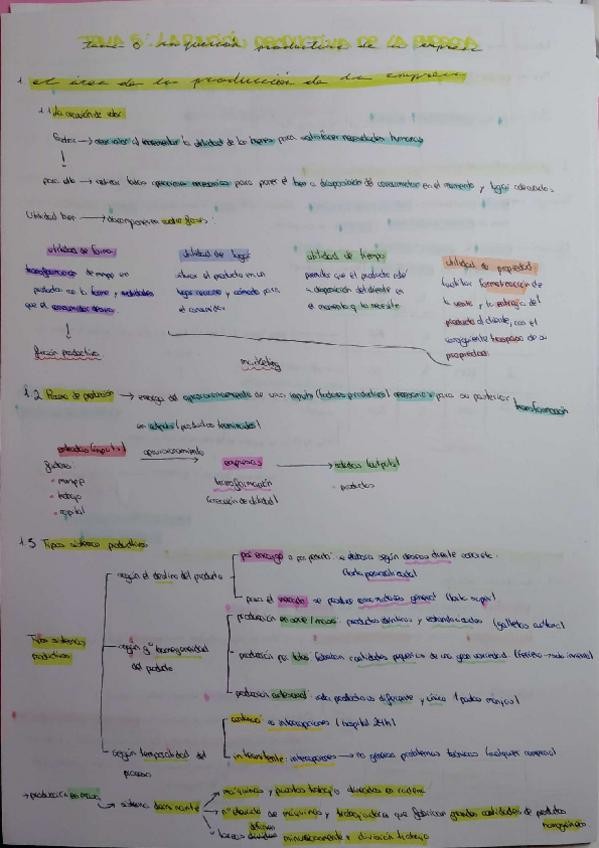 TEMA 5: LA FUNCIÓN PRODUCTIVA DE LA EMPRESA
1. el área de la producción de la empresa
1.1 La creación de valor
→ crear valor al incrementar la utilidad de los bienes para satisfacer necesidades humanas
para ello → realizar todas para poner el bien a disposición del consumidor en el momento y lugar adecuado.
Utilidad bien → descomponen en cuatro :
utilidad de forma
transformación de mmpp en
productos con la forma y
que el consumidor desea
↓
función productiva
utilidad de lugar
situar el producto en un
lugar y cómodo para
el consumidor
utilidad de tiempo
permitir que el producto esté
a disposición del cliente en
el momento q lo necesite
utilidad de propiedad
facilitar formalización de
la venta y la entrega del
producto al cliente, con el
consiguiente traspaso de su
propiedad
marketing
1.2 Proceso de producción → encarga del aprovisionamiento de unos inputs (factores productivos) necesarios para su posterior transformación
en outputs (productos terminados)
entradas (inputs)
factores:
· mmpp
· trabajo
· capital
aprovisionamiento →
empresas
transformación
(creación de utilidad)
→ salidas (outputs)
· productos
1.3 Tipos sistemas productivos
Tipos sistemas
productivos
según el destino del producto
por encargo o por pedido: se elabora según deseos cliente concreto.
para el mercado: se produce para general
según gº homogeneidad
del producto
producción en serie/masa: productos idénticos y estandarizados (galletas)
producción por lotes: fabrican cantidades pequeñas de una gran variedad
producción artesanal: cada producto es diferente y único
según temporalidad del
proceso
continuo: no interrupciones (hospital 24h)
intermitente: interrupciones → no genera problemas técnicos (cualquier comercio)
→ producción en masa → sistema dominante
máquinas y puestos trabajo en cadena
nº elevado de máquinas y trabajadores que fabrican grandes cantidades de productos
homogéneos
tareas minuciosamente → división trabajo